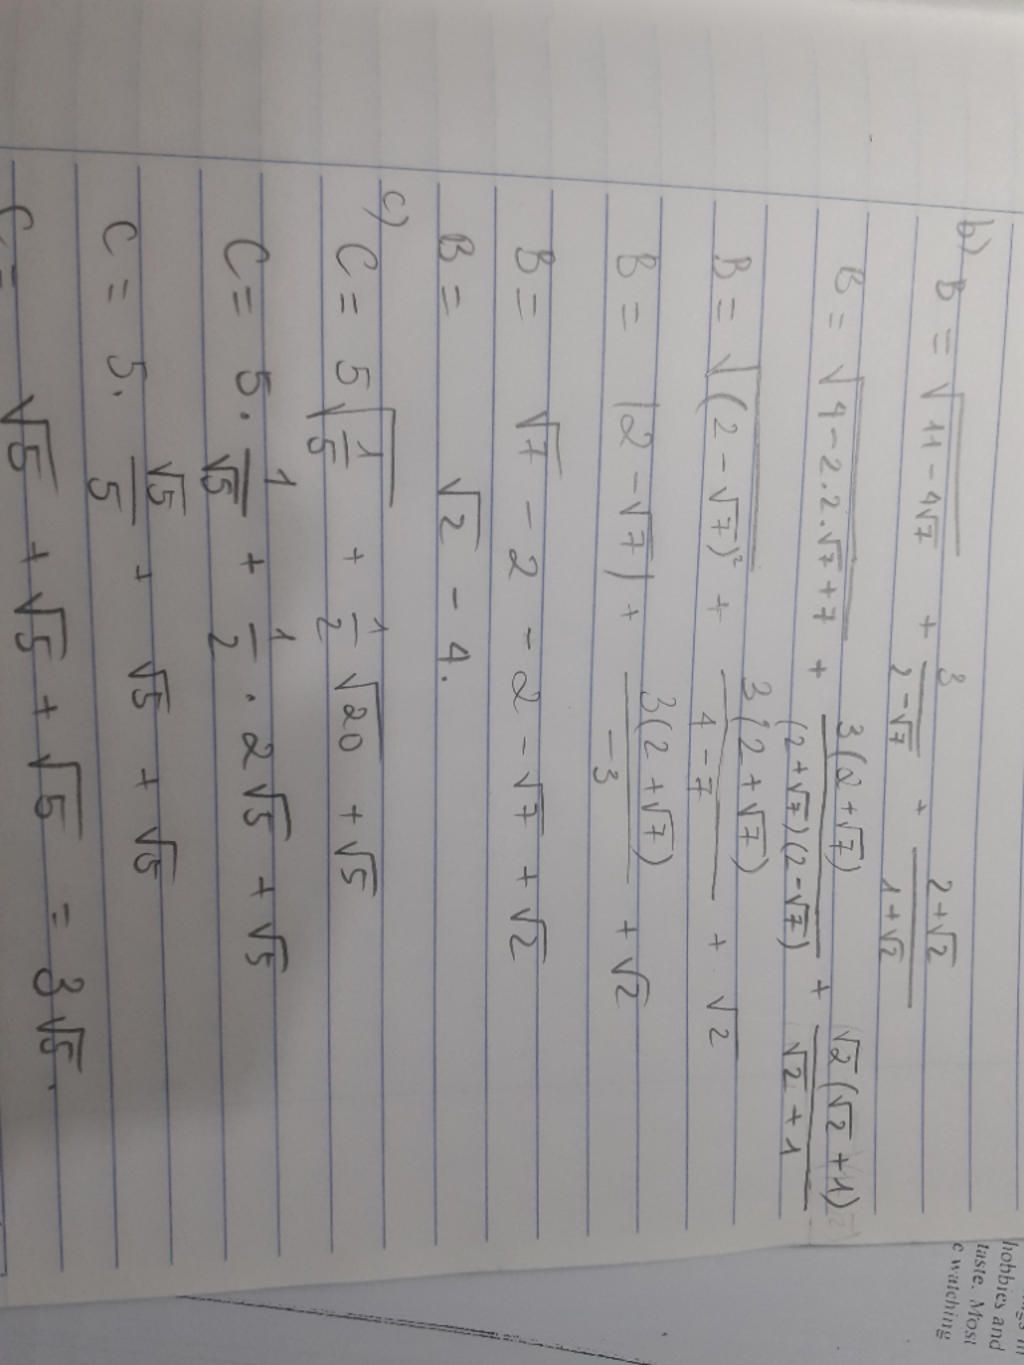 b) B = √(11 - 4√7) + 3/(2 - √7) + (2 + √2)/(1 + √2)
B = √(4 - 2.2.√7 + 7) + 3(2 + √7)/((2 + √7)(2 - √7)) + √2(√2 + 1)/(√2 + 1)
B = √((2 - √7)²) + 3(2 + √7)/(4 - 7) + √2
B = |2 - √7| + 3(2 + √7)/(-3) + √2
B = √7 - 2 - 2 - √7 + √2
B = √2 - 4.
c) C = 5√(1/5) + 1/2 √20 + √5
C = 5 . 1/√5 + 1/2 . 2√5 + √5
C = 5 . √5/5 + √5 + √5
C = √5 + √5 + √5 = 3√5.
hobbies and
taste. Most
watching